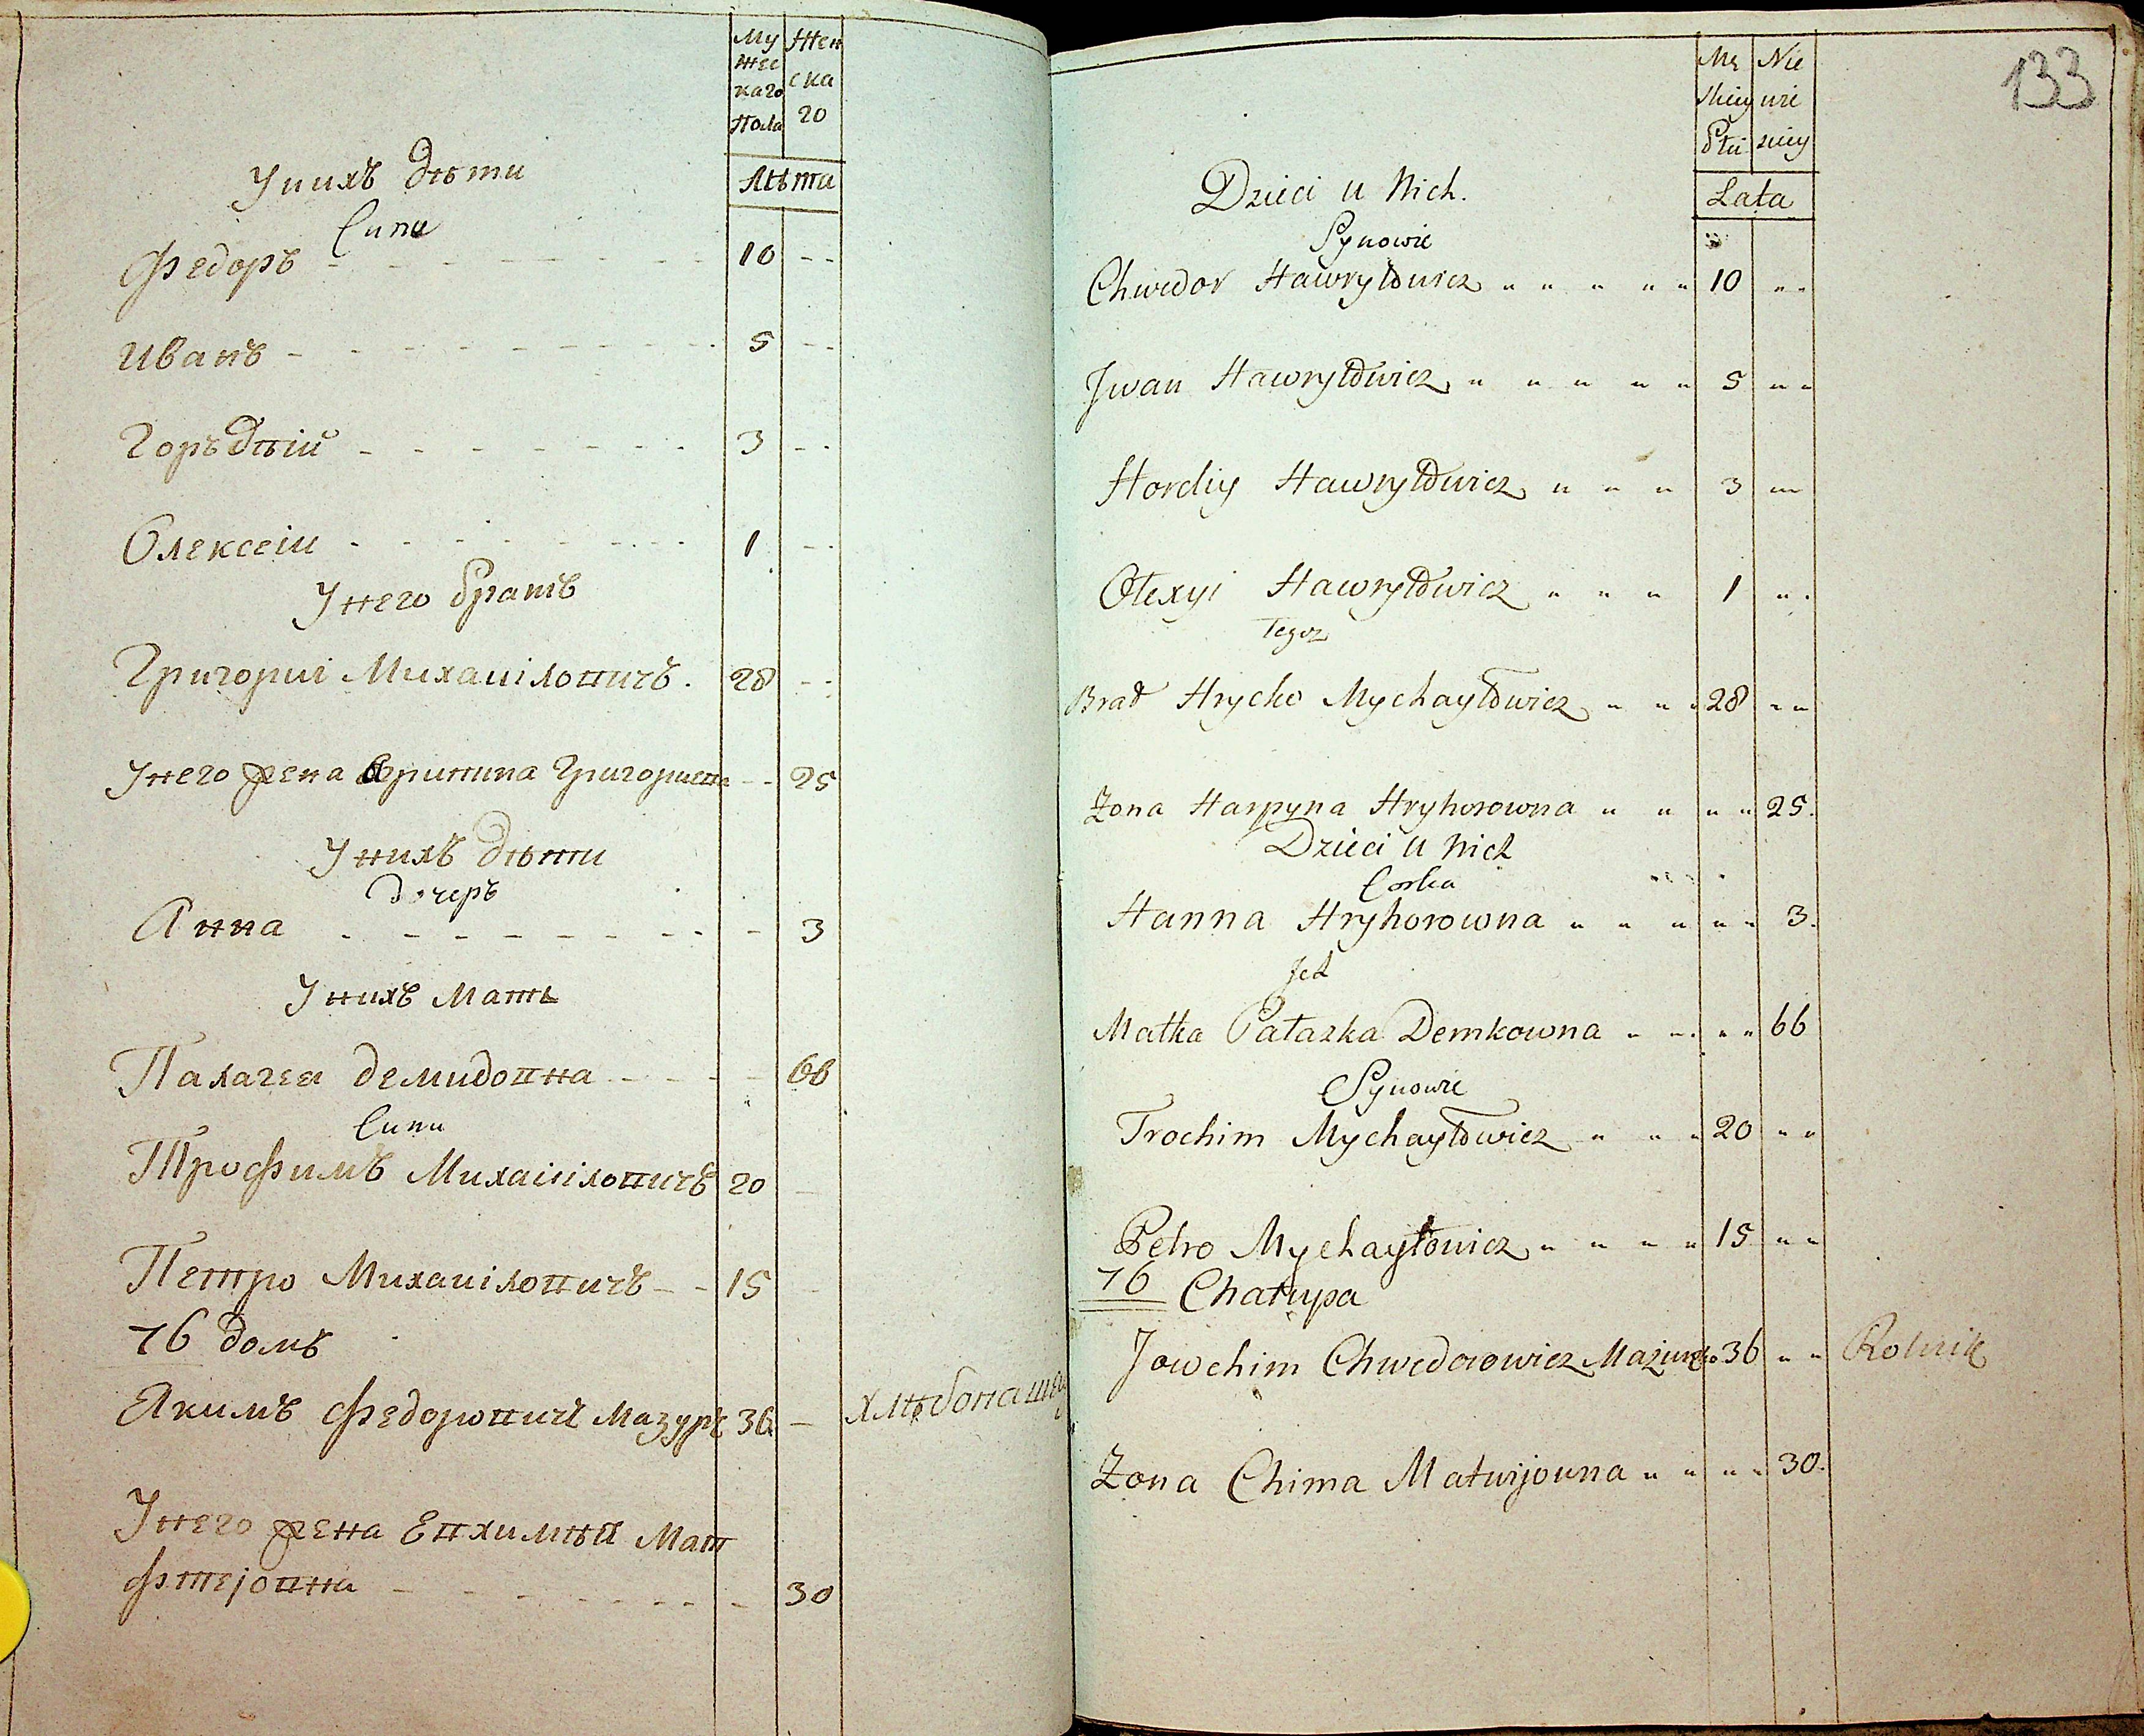 Му
жес
каго
Пола
Жен
ска
го
Лѣта
У нихъ дѣти
Сини
Федоръ 10
Иванъ 5
Горъдѣій 3
Олексеіи 1
У него братъ
Григориі Михаиіловичъ. 28
У него жена Агрипина Григориевна 25
У нихъ дѣти
дочеръ
Анна 3
У нихъ Мать
Палагея демидовна 66
Сини
Трофимъ Михаиіловичъ 20
Петро Михаиіловичъ 15
76 домъ
Якимъ Федоровичъ Мазуръ 36 хлѣбопашец
У него жена Евхимѣя Мат
фтеjовна 30
133
Mę
skiey
Płci
Nie
wie
sciey
Lata
Dzieci u Nich.
Synowie
Chwedor Hawryłowicz 10
Jwan Hawryłowicz 5
Hordiy Hawryłowicz 3
Ołexyi Hawryłowicz 1
Tegoz
Brat Hrycko Mychayłowicz 28
Żona Harpyna Hryhorowna 25.
Dzieci u Nich
Corka
Hanna Hryhorowna 3.
Jch
Matka Pałazka Demkowna 66
Synowie
Trochim Mychayłowicz 20
Petro Mychayłowicz 15
76 Chałupa
Jowchim Chwedorowicz Mazurko 36 Rolnik
Żona Chima Matwijowna 30.